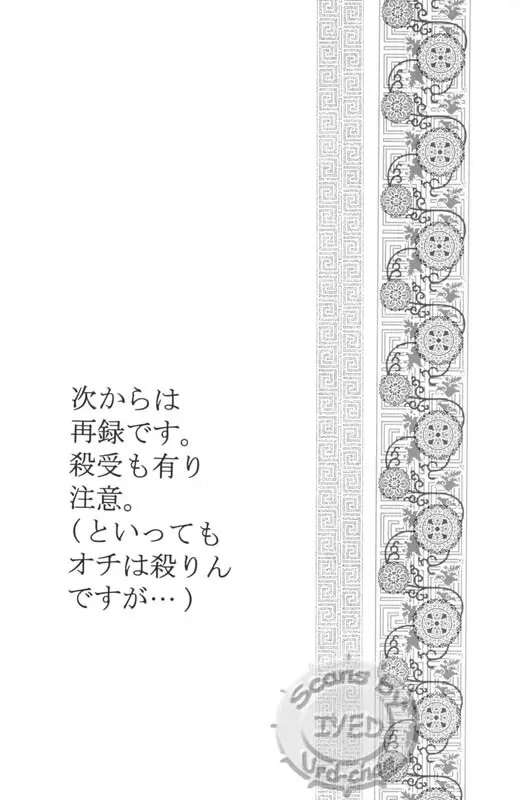 次からは
再録です。
殺受も有り
注意。
(といっても
オチは殺りん
ですが…)
Scans by:
IYED
Urd-chan